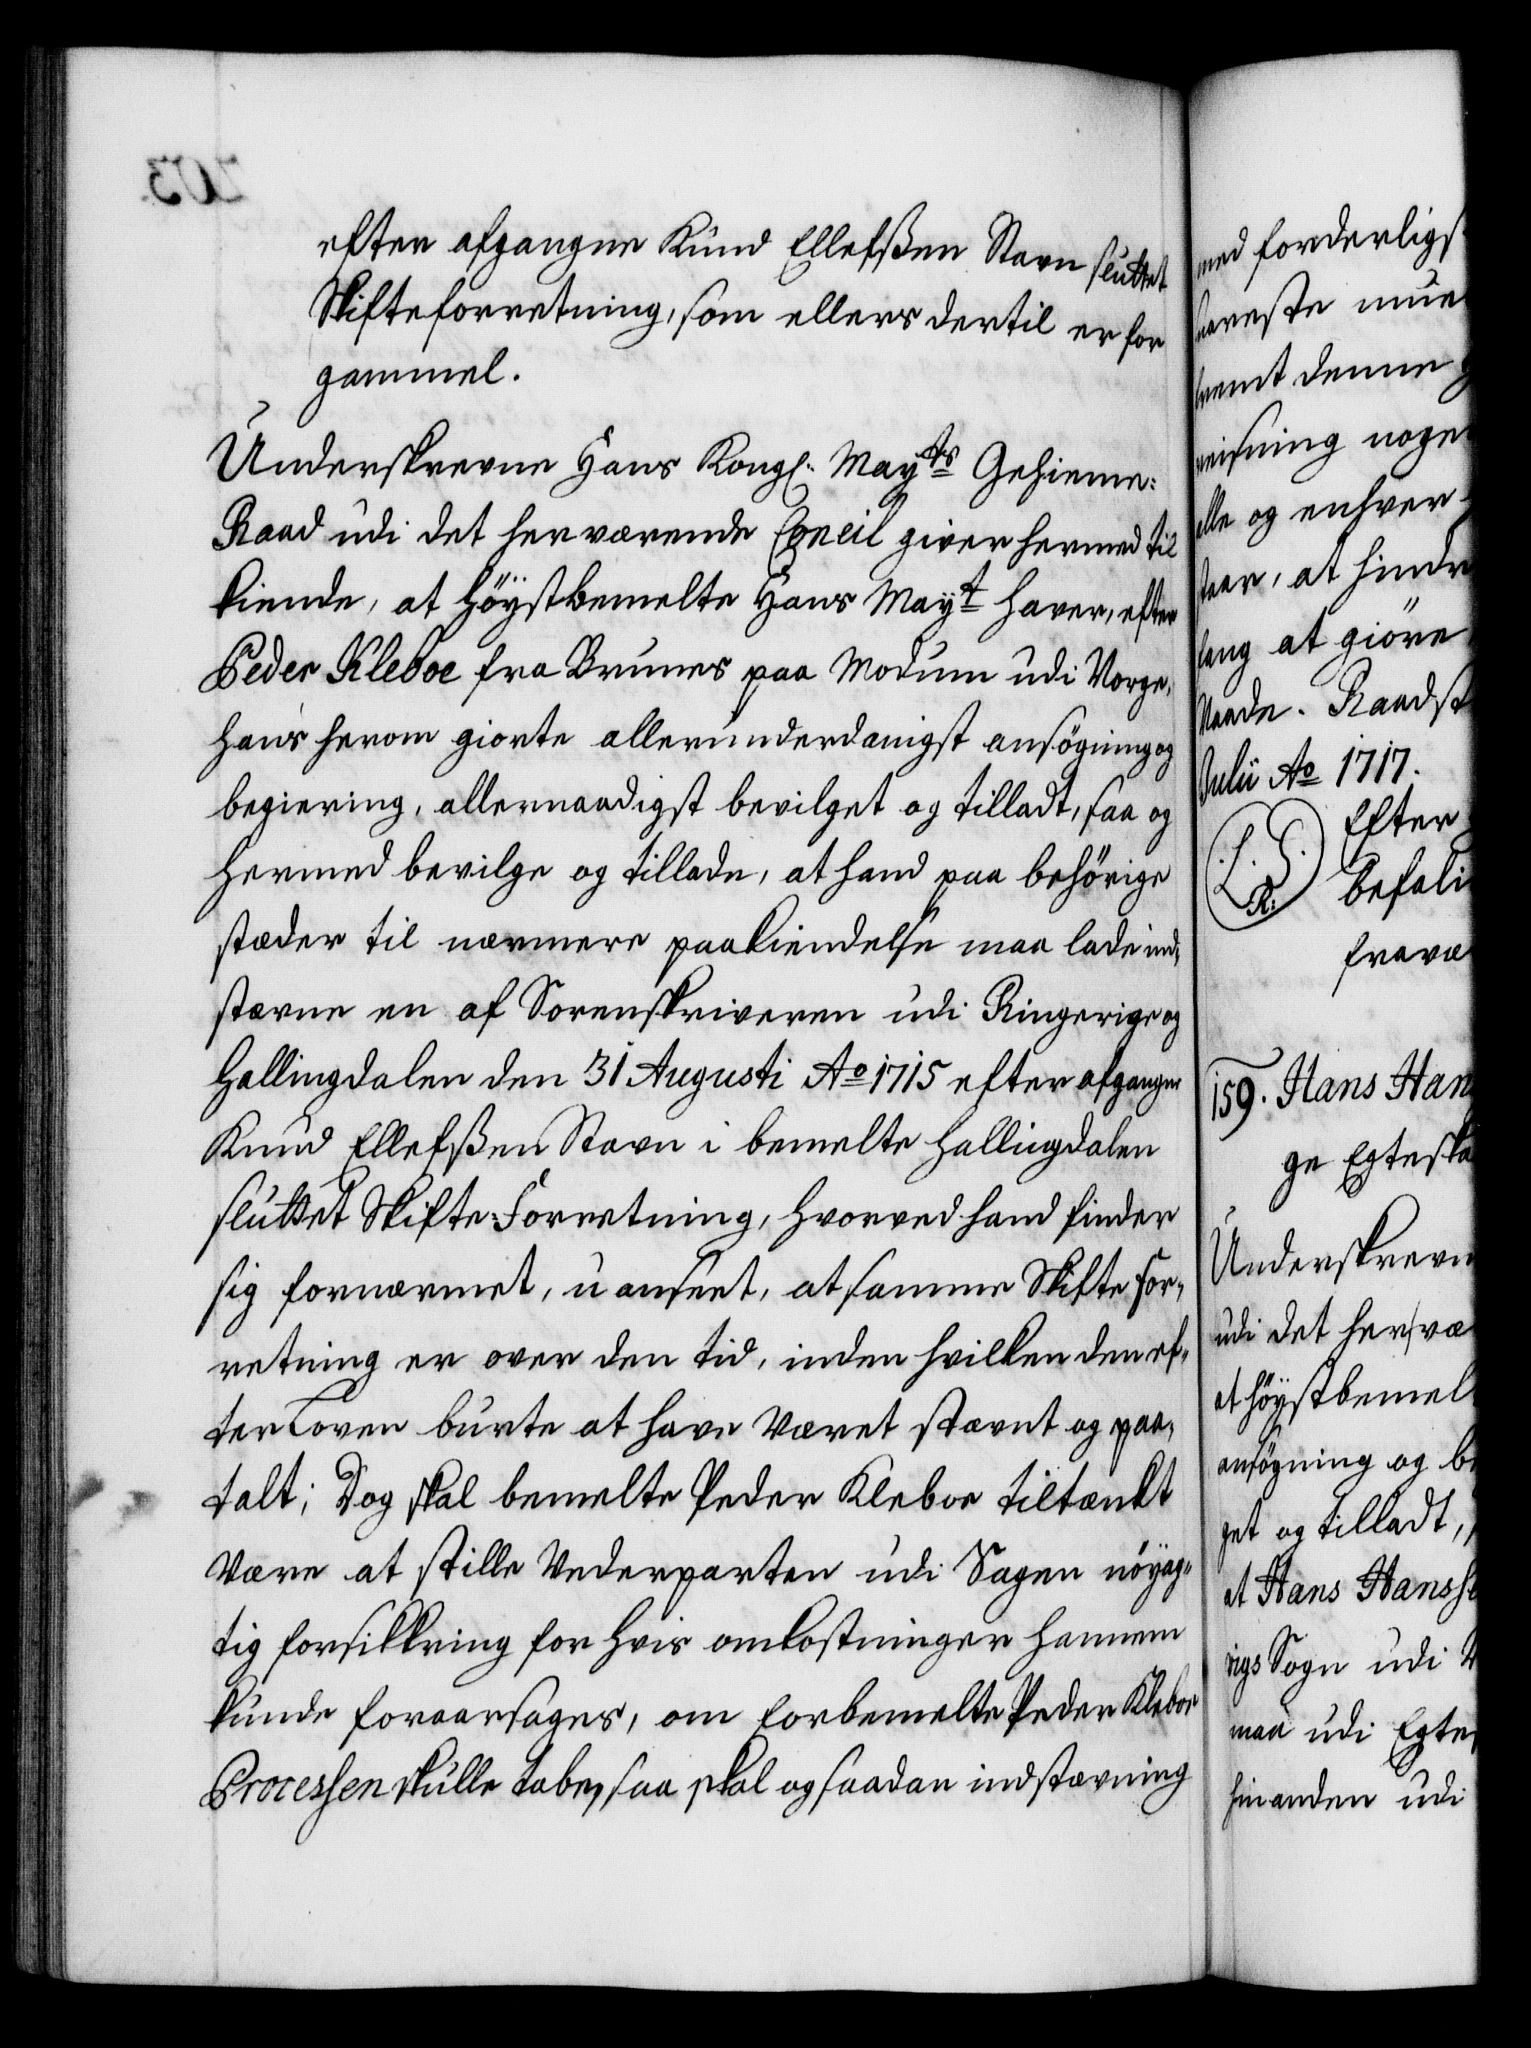 efter afgangne Knud Ellefsßen Stavn sluttet
Skifteforretning, som ellers dertil er for
gammel.
Underskrevne Hans Kongl. Mayts Geheime-
Raad udi det herværende Conseil giver hermed til
kiende, at höystbemelte Hans Mayt haver, efter
Peder Kleboe fra Brunes paa Modum udi Norge,
hans herom giorte allerunderdanigst ansögning og
begiering, allernaadigst bevilget og tilladt, saa og
hermed bevilge og tillade, at hand paa behörige
stæder til nærmere paakiendelse maa lade ind,
stævne en af Sorenskriveren udi Ringerige og
Hallingdalen den 31 Augusti Ao 1715 efter afgangne
Knud Ellefsßen Stavn i bemelte Hallingdalen
sluttet Skifte-Forretning, hvorved hand finder
sig fornærmet, uanseet, at samme Skifte for,
retning er over den tid, inden hvilken den ef,
ter Loven burte at have været stævnt og paa,
talt; Dog skal bemelte Peder Kleboe tiltænkt
være at stille Vederparten udi Sagen nöyag,
tig forsikkring for hvis omkostninger hannem
kunde foraarsages, om forbemelte Peder Kleboe
Processen skulle tabe, saa skal og saadan indstævning
med forderligst
mue
denne
noge
elle og enhver
at hindre
at giöre
Raadst
Julii Ao 1717.
L. S.
R:
Efter
befali
fravæ
159. Hans Han
ge Egteska
Underskrevn
udi det hervæ
at höystbemel
ansögning og be
get og tilladt,
at Hans Hansse
Sogn udi
maa udi Egte
hinanden udi